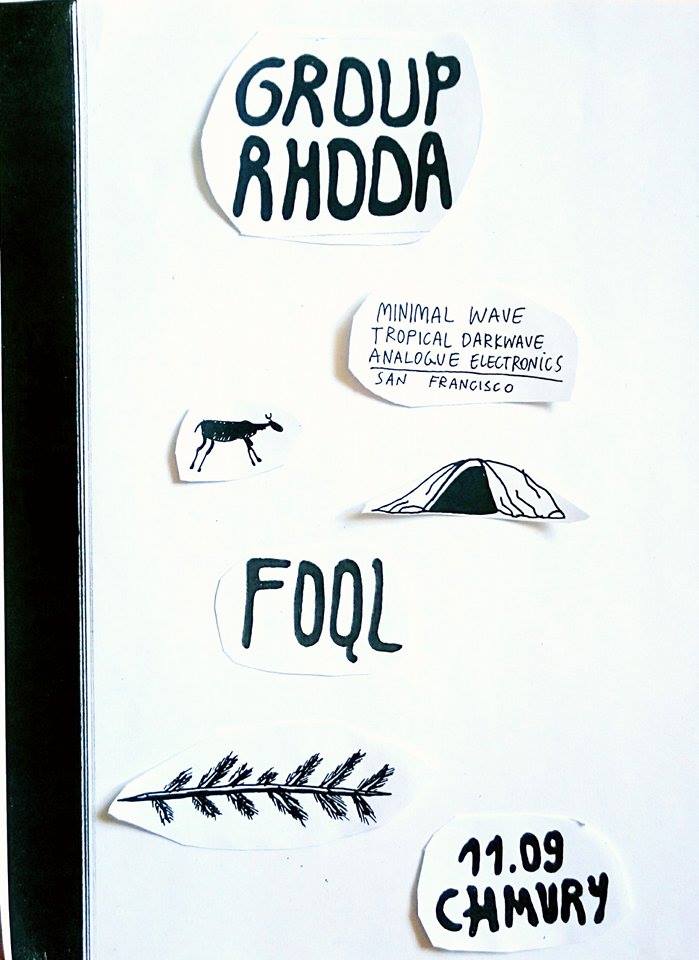 GROUP
RHODA
MINIMAL WAVE
TROPICAL DARKWAVE
ANALOGUE ELECTRONICS
SAN FRANCISCO
FOQL
11.09
CHMURY